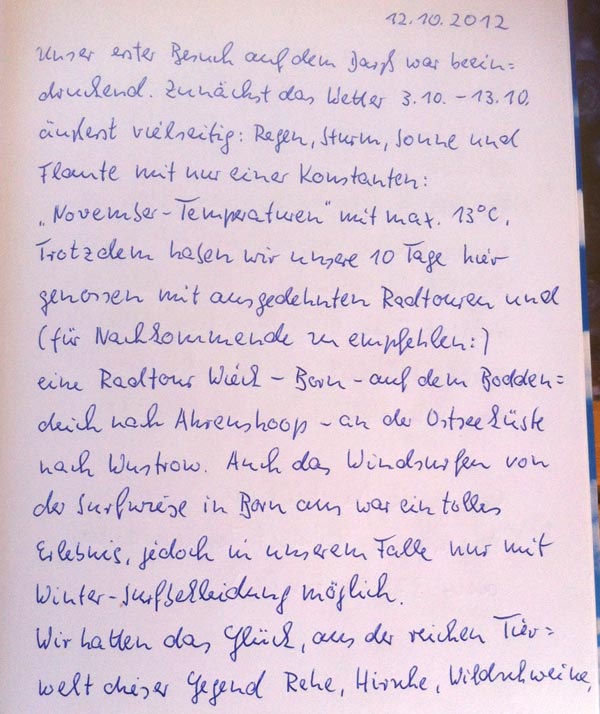 12.10.2012
Unser erster Besuch auf dem Darß war beein=
druckend. Zunächst das Wetter 3.10. - 13.10.
äußerst vielseitig: Regen, Sturm, Sonne und
Flaute mit nur einer Konstanten:
„November-Temperaturen" mit max. 13°C.
Trotzdem haben wir unsere 10 Tage hier
genossen mit ausgedehnten Radtouren und
(für Nachkommende zu empfehlen:)
eine Radtour Wieck - Born - auf dem Bodden=
deich nach Ahrenshoop - an der Ostseeküste
nach Wustrow. Auch das Windsurfen von
der Surfwiese in Born aus war ein tolles
Erlebnis, jedoch in unserem Falle nur mit
Winter-Surfbekleidung möglich.
Wir hatten das Glück, aus der reichen Tier=
welt dieser Gegend Rehe, Hirsche, Wildschweine,